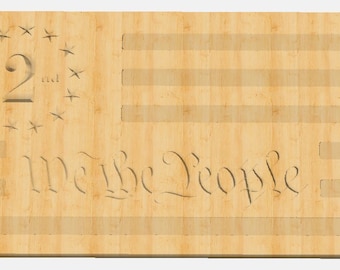 2nd
We the People